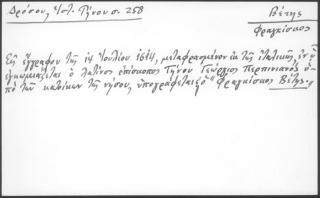 Δρόσου, Ἱστ. Τήνου σ. 258
Βέτης
Φραγκίσκος
Εἰς ἔγγραφον τῆς 14 Ἰουλίου 1614, μεταφρασμένον ἐκ τῆς ἰταλικῆς, ἐν ᾧ
ἐγκωμιάζεται ὁ λατῖνος ἐπίσκοπος Τήνου Γεώργιος Περπινιανὸς ὑ-
πὸ τῶν κατοίκων τῆς νήσου, ὑπογράφεται ὁ "Φραγκίσκος Βέτης".